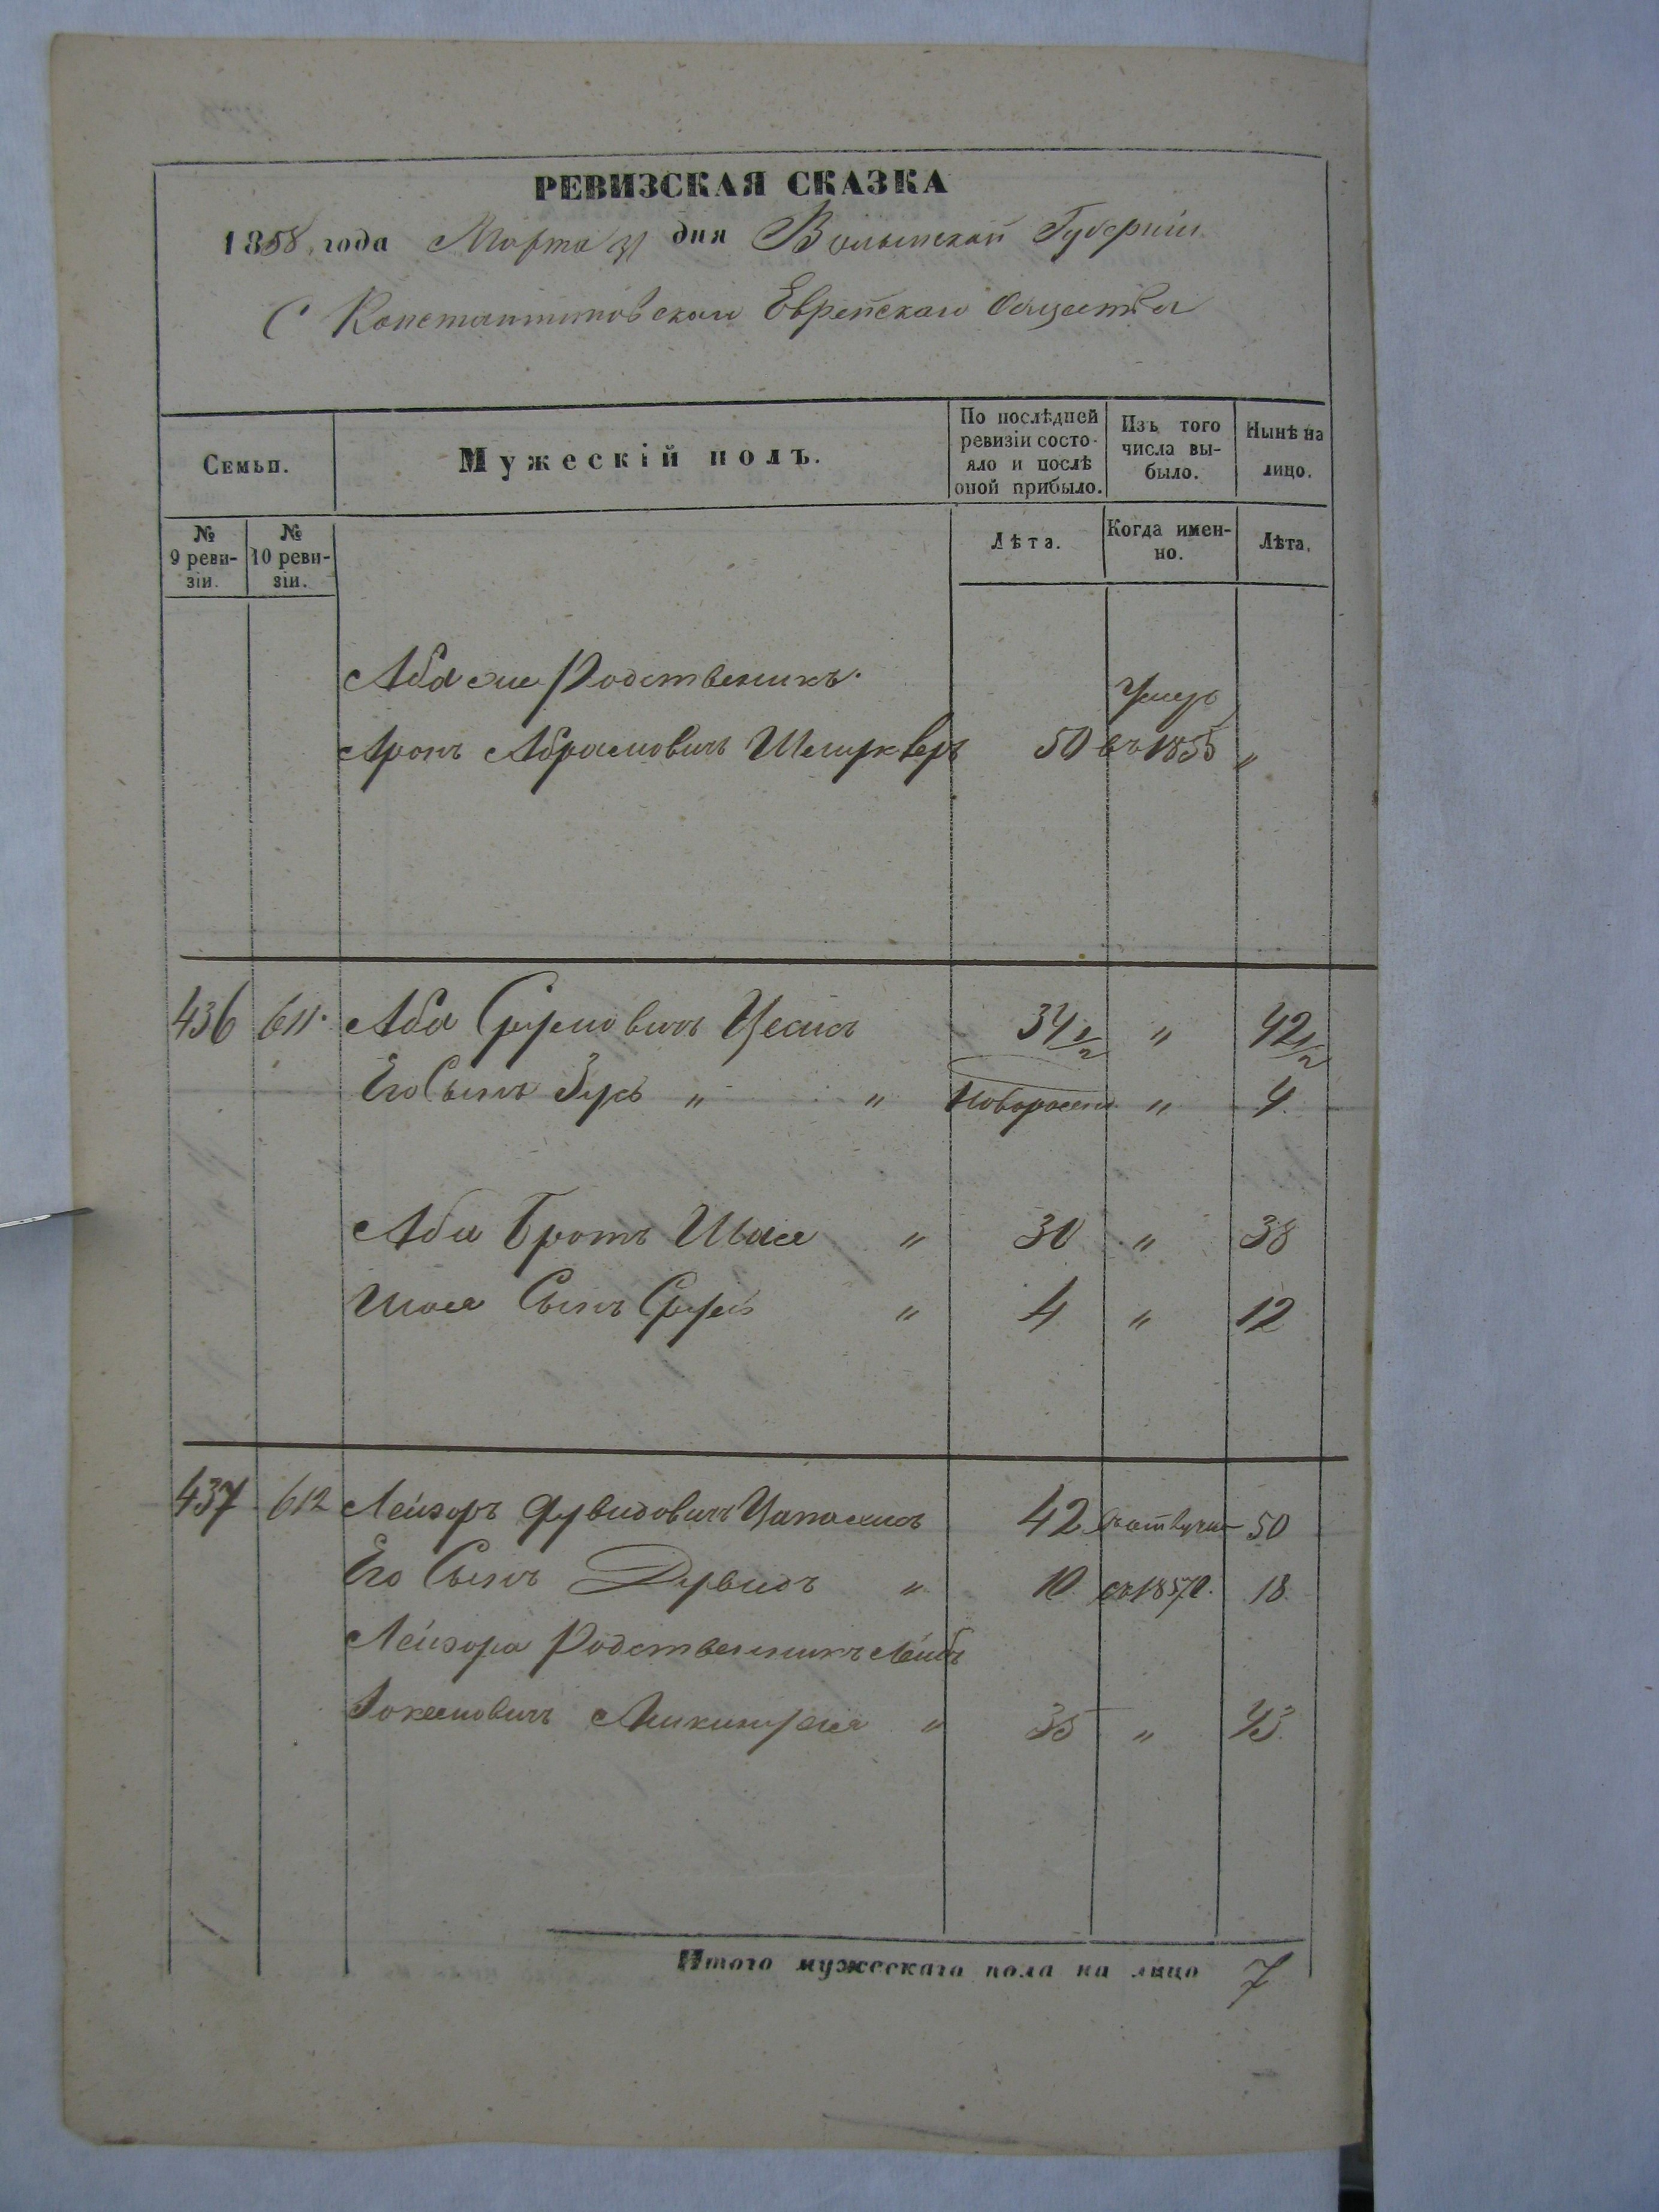 РЕВИЗСКАЯ СКАЗКА
1858 года Марта 31 дня Волынской Губерніи
С Константиновскаго Еврейскаго Общества
Семьи.
Мужескій полъ.
По послѣдней ревизіи состояло и послѣ оной прибыло.
Изъ того числа выбыло.
Нынѣ на лицо.
№ 9 ревизіи.
№ 10 ревизіи.
Лѣта.
Когда именно.
Лѣта.
Аба же Родственикъ.
Аронъ Абрамовичъ 50 Умеръ въ 1855 "
436 611. Аба Сруловичъ 34 1/2 " 42 1/2
Его Сынъ " " Новорожден " 4
Аба Братъ Шая " 30 " 38
Шаи Сынъ Сруль " 4 " 12
437 612 Лейзоръ Дувидовичъ 42 50
Его Сынъ Дувидъ " 10 съ 1857 г. 18
Лейзора Родственникъ Лейбъ
" 35 " 43
Итого мужескаго пола на лицо 7